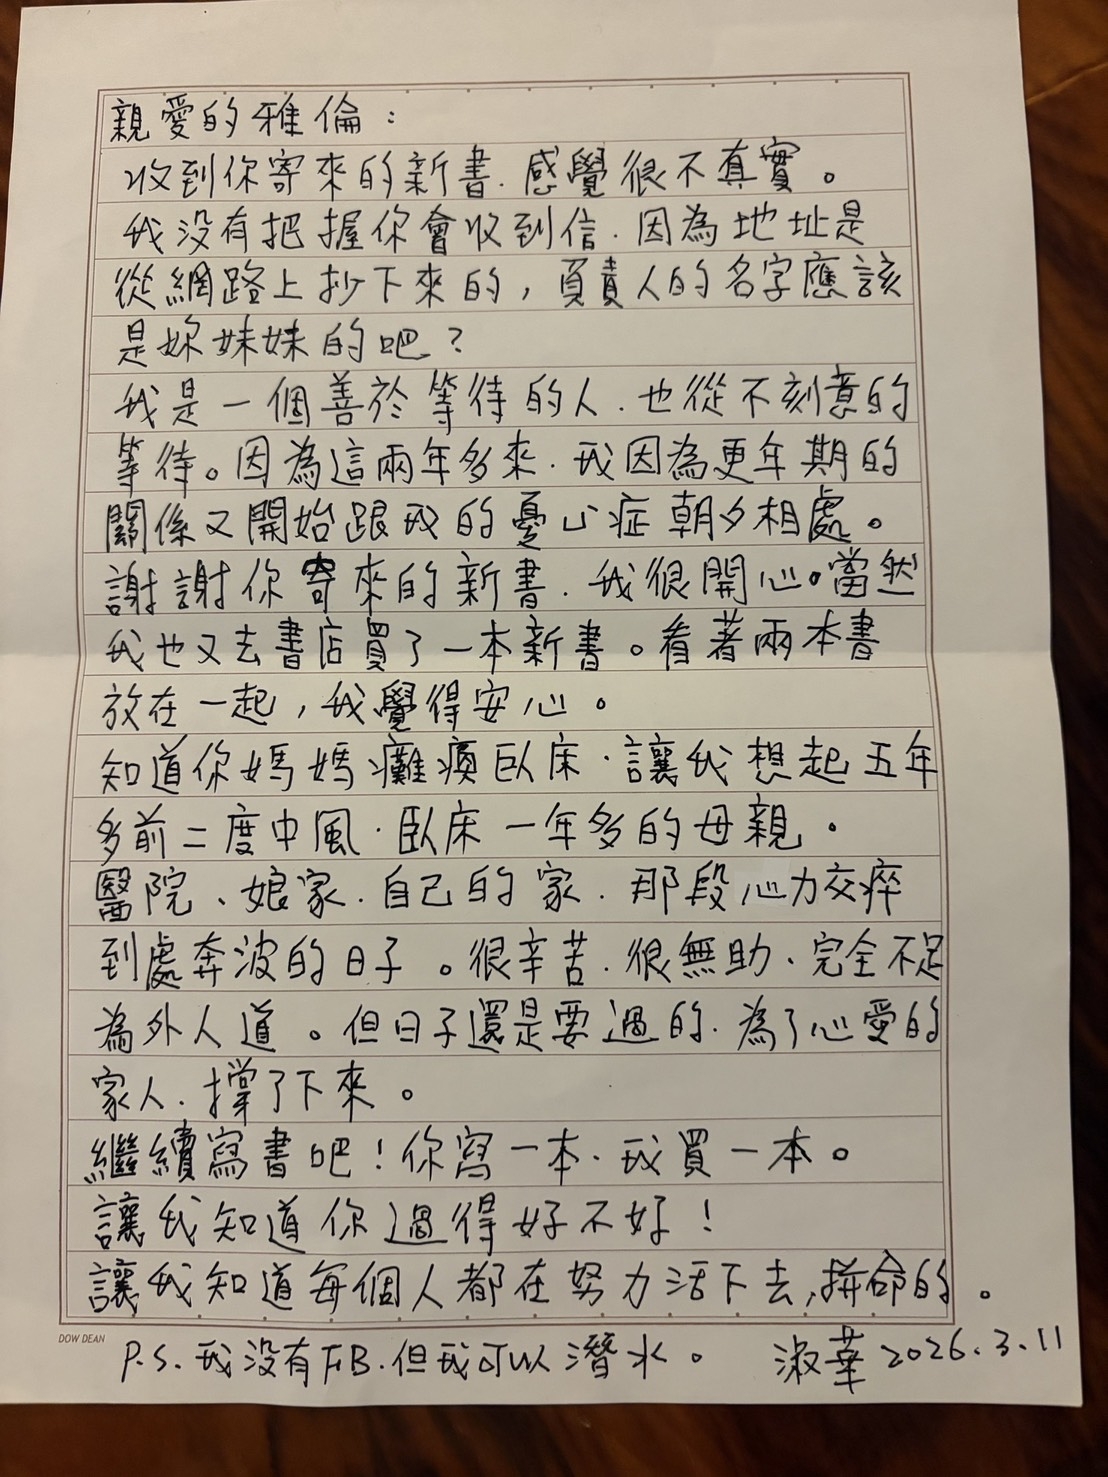 親愛的雅倫：
收到你寄來的新書．感覺很不真實。
我沒有把握你會收到信．因為地址是
從網路上抄下來的，負責人的名字應該
是妳妹妹的吧？
我是一個善於等待的人．也從不刻意的
等待。因為這兩年多來．我因為更年期的
關係又開始跟我的憂心症朝夕相處。
謝謝你寄來的新書．我很開心。當然
我也又去書店買了一本新書。看著兩本書
放在一起，我覺得安心。
知道你媽媽癱瘓臥床．讓我想起五年
多前二度中風．臥床一年多的母親．
醫院、娘家．自己的家．那段心力交瘁
到處奔波的日子。很辛苦．很無助、完全不足
為外人道。但日子還是要過的．為了心愛的
家人．撐了下來。
繼續寫書吧！你寫一本．我買一本。
讓我知道你過得好不好！
讓我知道每個人都在努力活下去，拼命的。
DOW DEAN
P.S. 我沒有FB．但我可以潛水。 淑華 2026.3.11